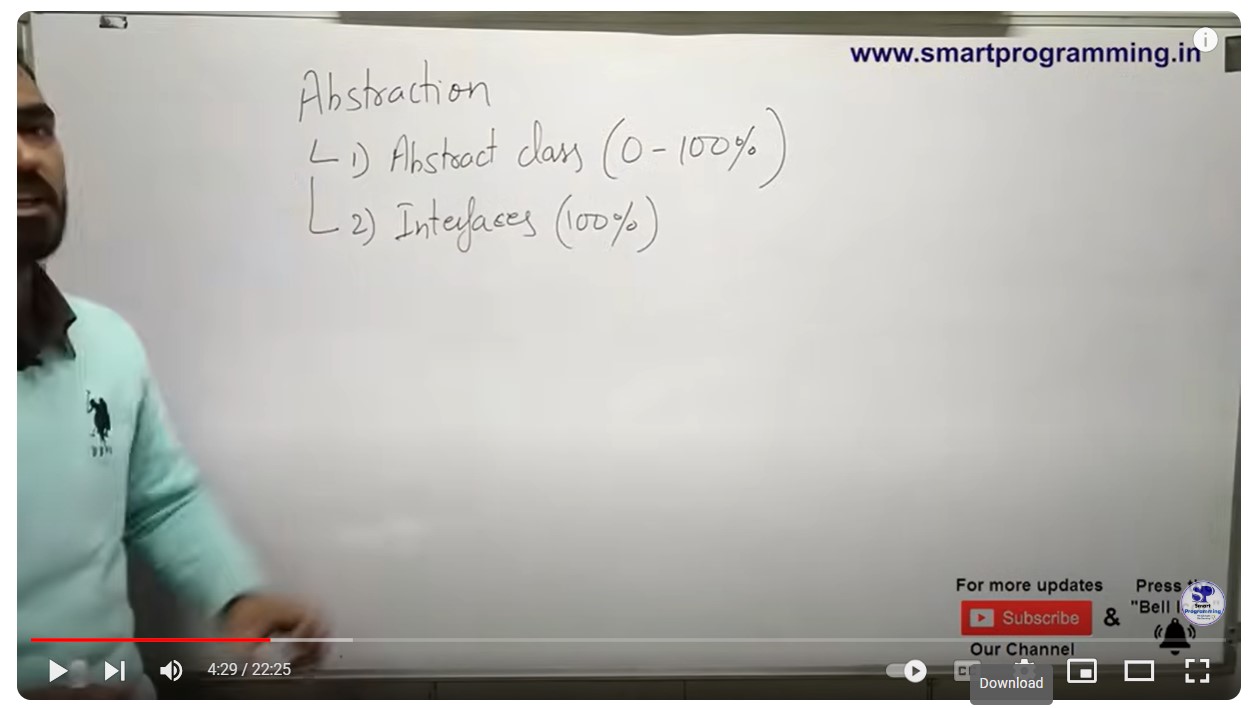 www.smartprogramming.in
Abstraction
1) Abstract class (0-100%)
2) Interfaces (100%)
For more updates
Subscribe
&
Our Channel
Press
"Bell
SP
Smart
Programming
4:29 / 22:25
Download